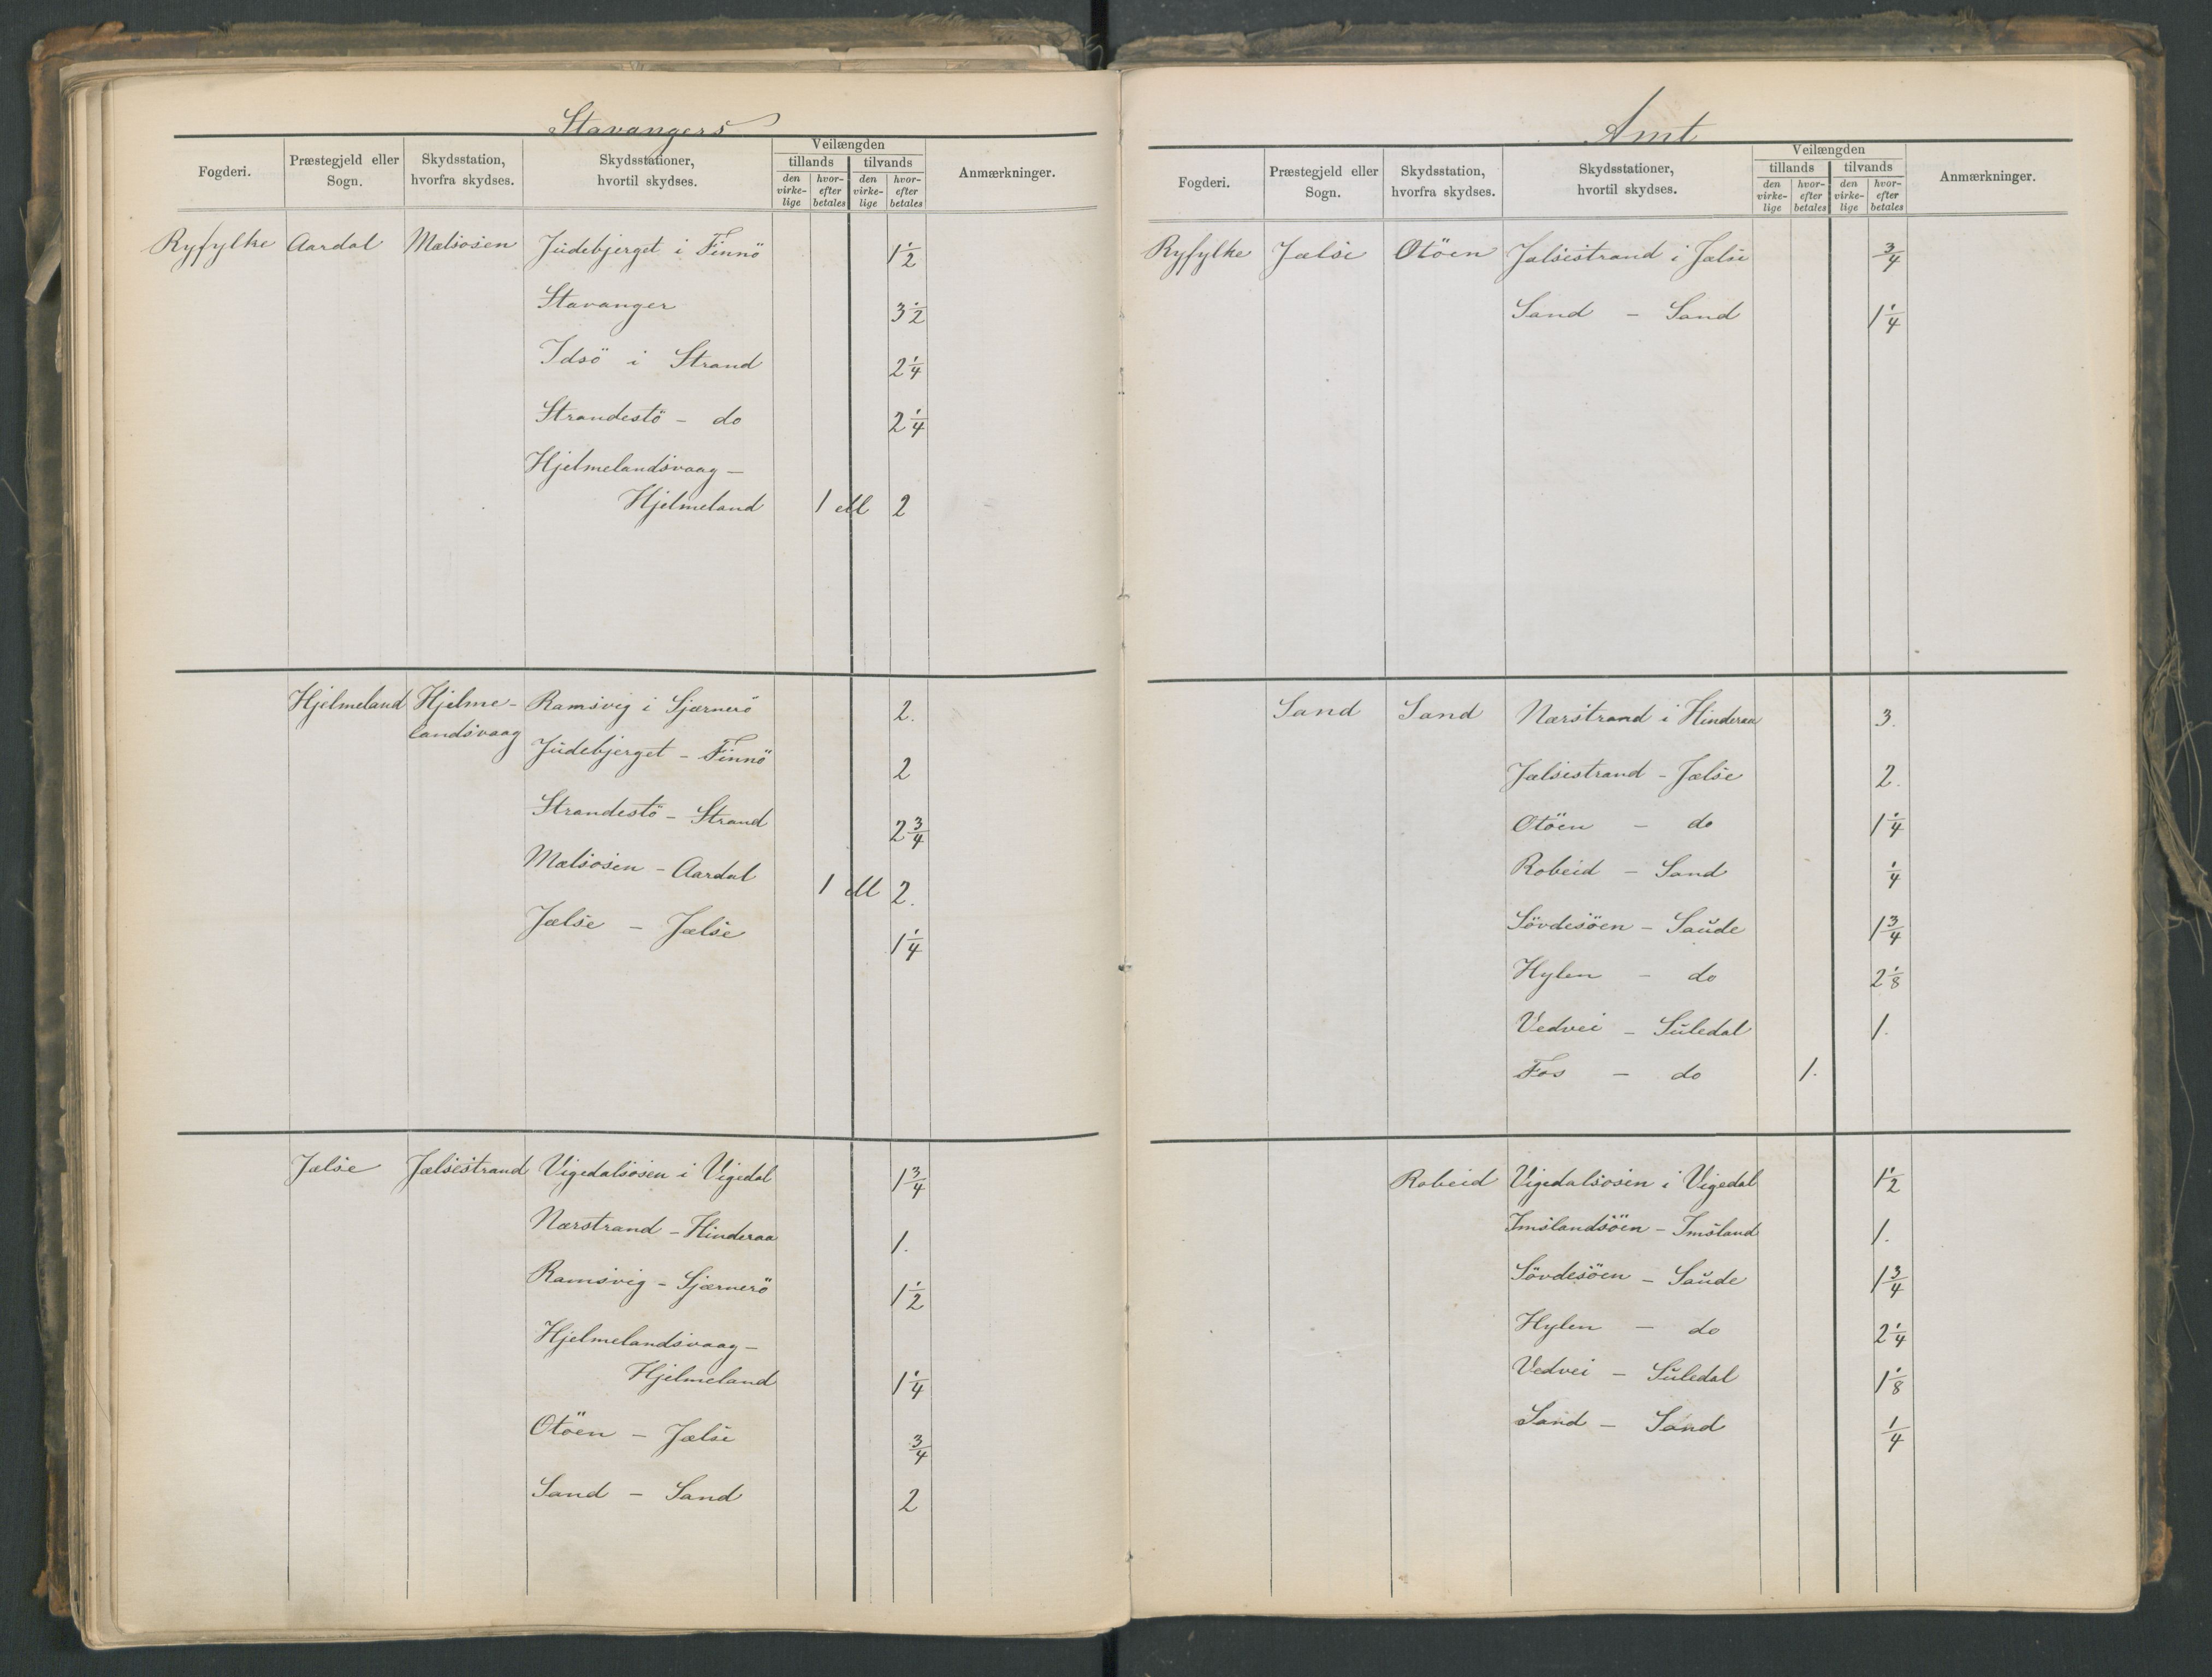 Stavangers
Fogderi.
Præstegjeld eller Sogn.
Skydsstation, hvorfra skydses.
Skydsstationer, hvortil skydses.
Veilængden
tillands
tilvands
den virkelige
hvorefter betales
den virkelige
hvorefter betales
Anmærkninger.
Ryfylke Aardal Mælsosen Judebjerget i Finnö 1 1/2
Stavanger 3 1/2
Idsö i Strand 2 1/4
Strandestö - do 2 1/4
Hjelmelandsvaag -
Hjelmeland 1 ell 2
Hjelmeland Hjelme- Ramsvig i Sjærnerö 2.
landsvaag Judebjerget - Finnö 2
Strandestö - Strand 2 3/4
Mælsosen - Aardal 1 ell 2.
Jælse - Jælse 1 1/4
Jælse Jælsestrand Vigedalsosen i Vigedal 1 3/4
Nærstrand - Hinderaa 1.
Ramsvig - Sjærnerö 1 1/2
Hjelmelandsvaag -
Hjelmeland 1 1/4
Otöen - Jælse 3/4
Sand - Sand 2
Amt
Fogderi.
Præstegjeld eller Sogn.
Skydsstation, hvorfra skydses.
Skydsstationer, hvortil skydses.
Veilængden
tillands
tilvands
den virkelige
hvorefter betales
den virkelige
hvorefter betales
Anmærkninger.
Ryfylke Jælse Otöen Jælsestrand i Jælse 3/4
Sand - Sand 1 1/4
Sand Sand Nærstrand i Hinderaa 3.
Jælsestrand - Jælse 2.
Otöen - do 1 1/4
Robeid - Sand 1/4
Sövdesöen - Saude 1 3/4
Hylen - do 2 1/8
Vedvei - Suledal 1.
Fos - do 1.
Robeid Vigedalsosen i Vigedal 1 1/2
Imslandsöen - Imsland 1.
Sövdesöen - Saude 1 3/4
Hylen - do 2 1/4
Vedvei - Suledal 1 1/8
Sand - Sand 1/4